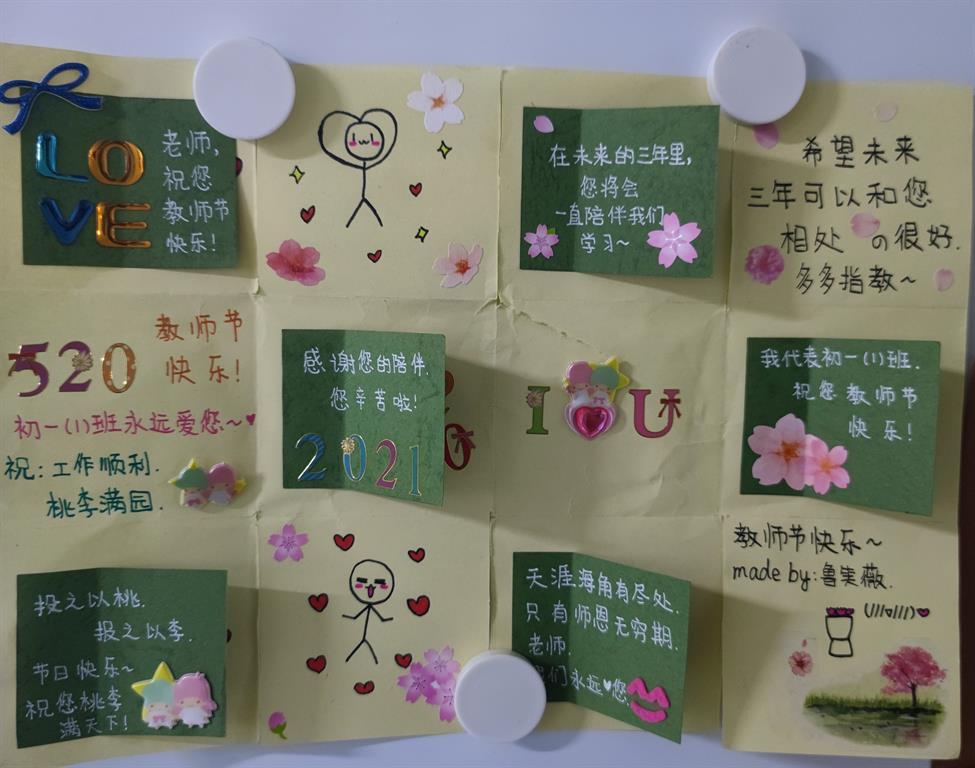 LO
VE
老师,
祝您
教师节
快乐!
在未来的三年里,
您将会
一直陪伴我们
学习~
希望未来
三年可以和您
相处の很好.
多多指教~
520
教师节
快乐!
初一(1)班永远爱您~♥
祝:工作顺利.
桃李满园.
感谢您的陪伴.
您辛苦啦!
2021
I U
我代表初一(1)班.
祝您教师节
快乐!
投之以桃.
报之以李.
节日快乐~
祝您桃李
满天下!
天涯海角有尽处.
只有师恩无穷期.
老师.
我们永远♥您.
教师节快乐~
made by:鲁 薇.
(///▽///)♥